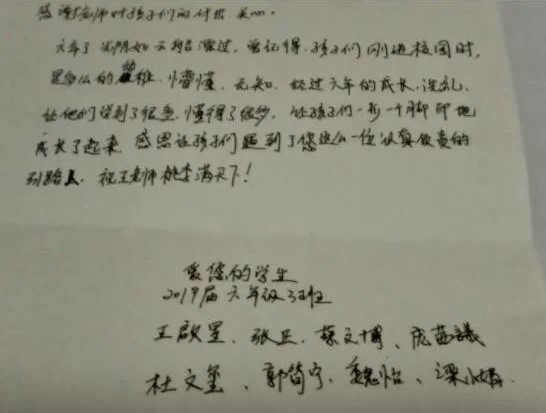 感谢老师对孩子们的付出、关心。
六年了 光阴如云般飘过,曾记得,孩子们刚进校园时,
是多么的稚、懵懂、无知、经过六年的成长、洗礼,
让他们学到了很多,懂得了很多,让孩子们一步一个脚印地
成长了起来 感恩让孩子们遇到了您这么一位认真负责的
引路人,祝王老师桃李满天下!
爱您的学生
2019届六年级3班
王啟星、张、蔡文博、庞
杜文玺、郭简宁、魏怡、梁